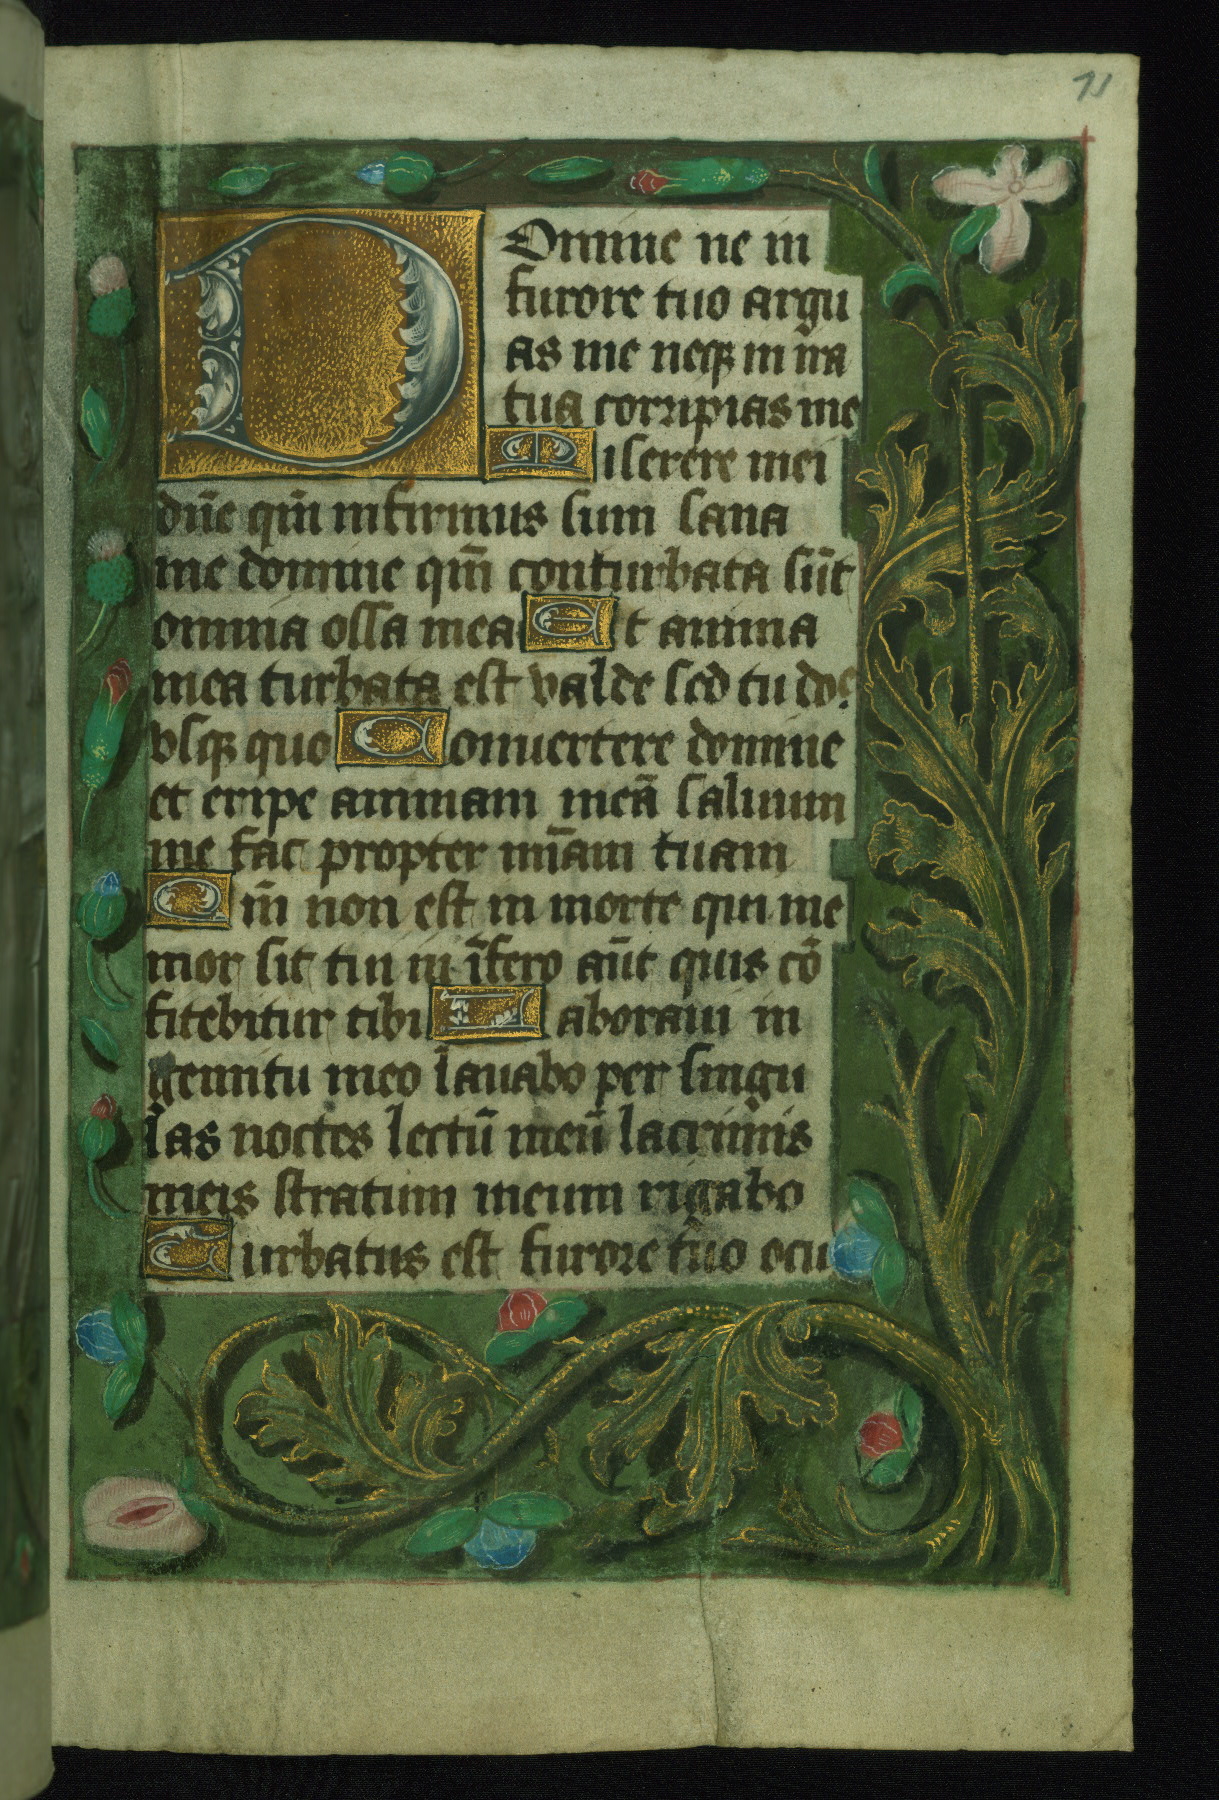 71
DOmine ne in
furore tuo argu
as me neqꝫ in ira
tua corripias me
Miserere mei
dn̄e qm̄ infirmus sum sana
me domine qm̄ conturbata sūt
omnia ossa mea Et anima
mea turbata est valde sed tu dōe
vsqꝫ quo Conuertere domine
et eripe animam meā saluum
me fac propter mīam tuam
Qm̄ non est in morte qui me
mor sit tui in īfero aūt quis cō
fitebitur tibi Laboraui in
gemitu meo lauabo per singu
las noctes lectū meū lacrimis
meis stratum meum rigabo
Turbatus est furore tuo ocu